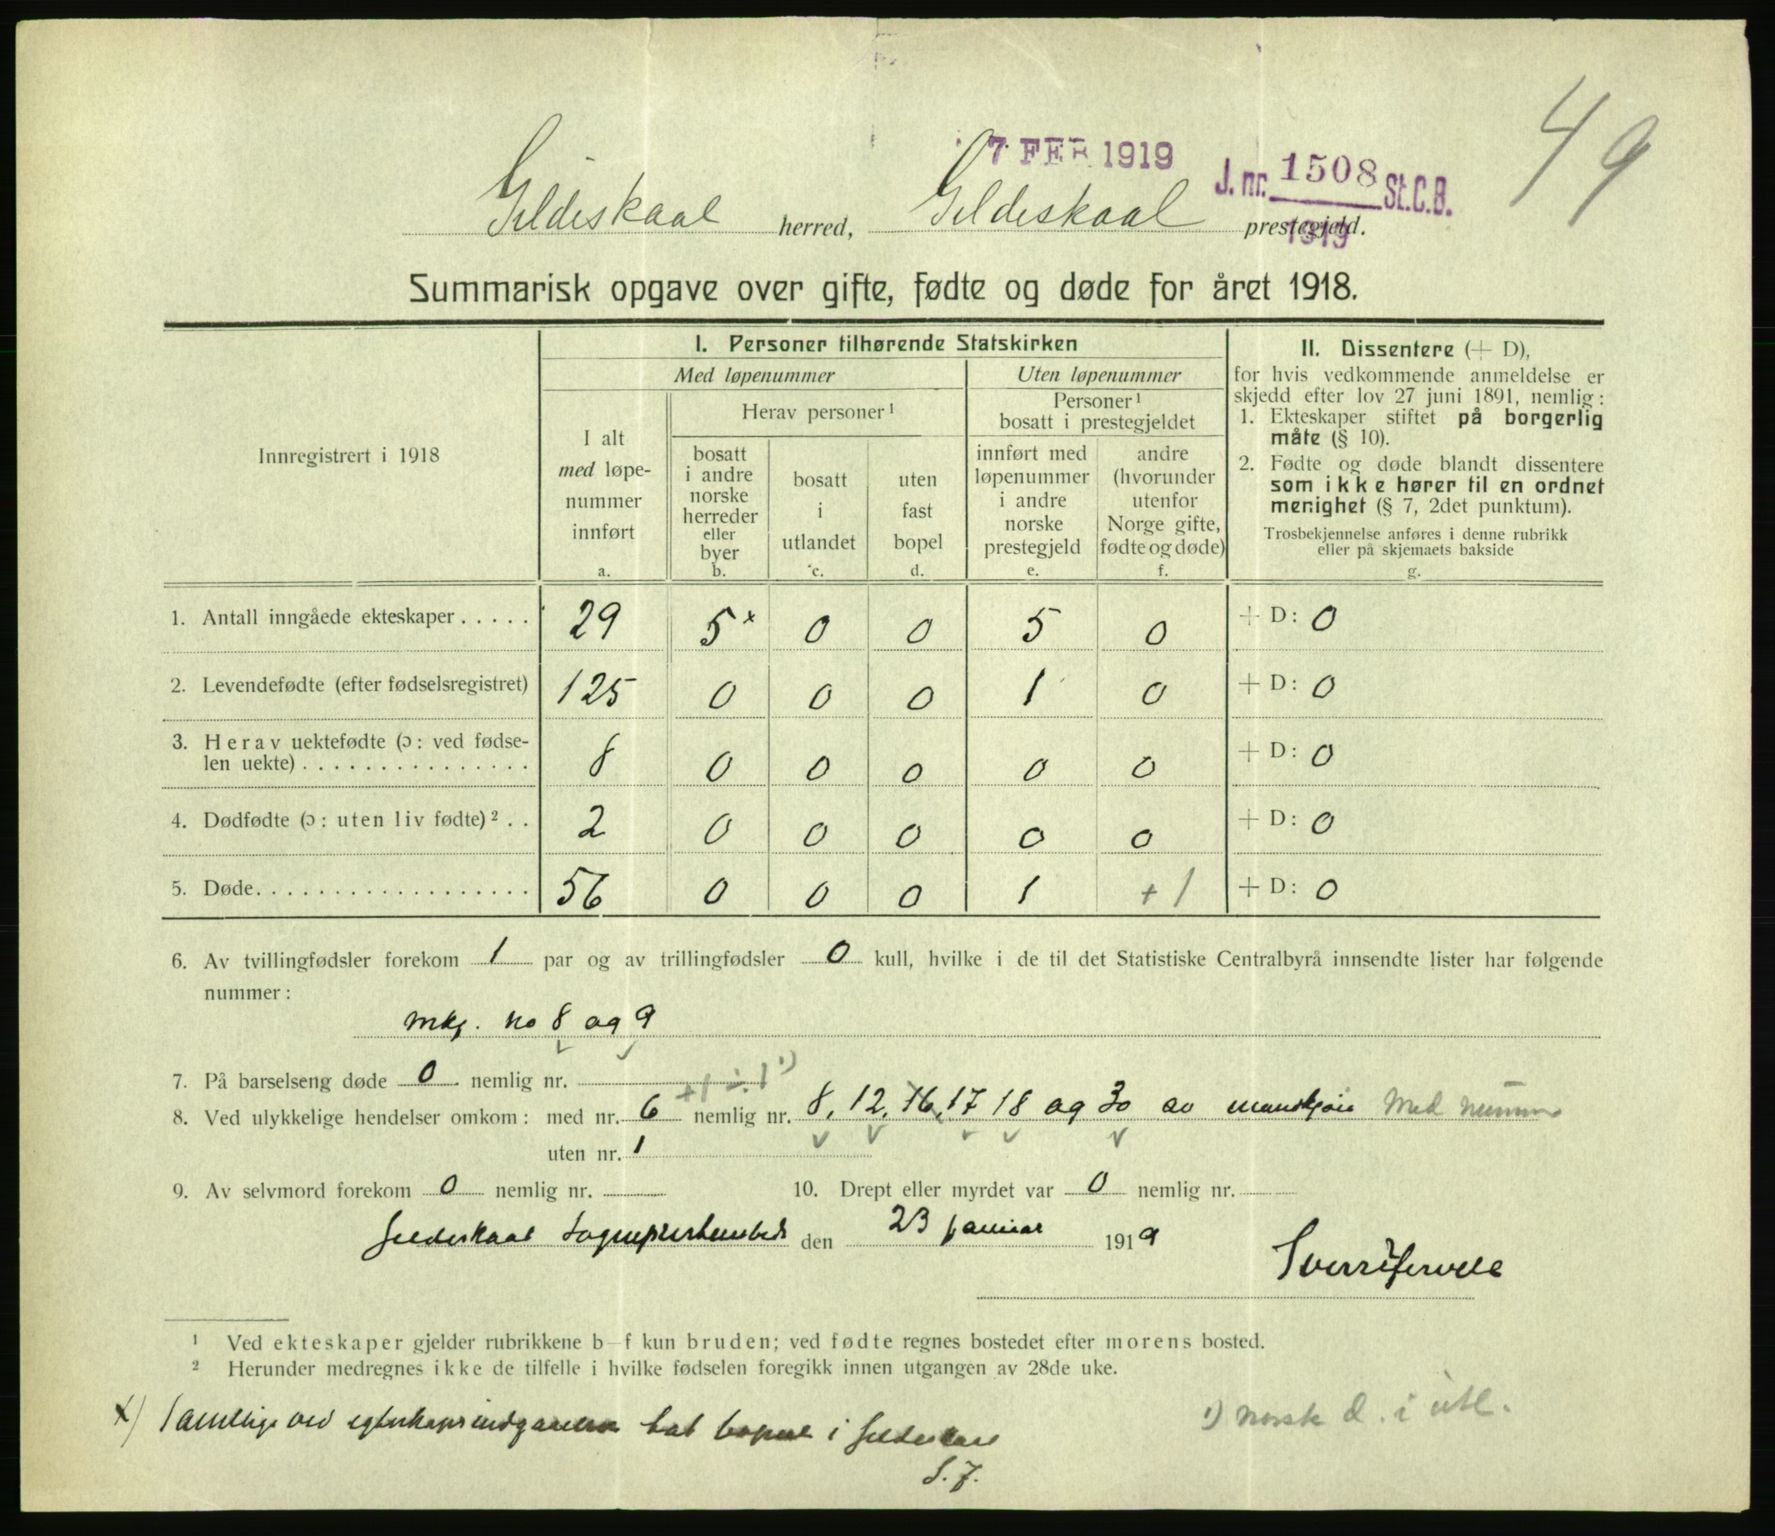 49
7 FEB 1919
J. nr. 1508 St.C.B.
1919
Gildeskaal herred, Gildeskaal prestegjeld.
Summarisk opgave over gifte, fødte og døde for året 1918.
Innregistrert i 1918
I. Personer tilhørende Statskirken
Med løpenummer
Uten løpenummer
I alt
med løpe-
nummer
innført
a.
Herav personer ¹
bosatt
i andre
norske
herreder
eller
byer
b.
bosatt
i
utlandet
c.
uten
fast
bopel
d.
Personer ¹
bosatt i prestegjeldet
innført med
løpenummer
i andre
norske
prestegjeld
e.
andre
(hvorunder
utenfor
Norge gifte,
fødte og døde)
f.
II. Dissentere (+ D),
for hvis vedkommende anmeldelse er
skjedd efter lov 27 juni 1891, nemlig:
1. Ekteskaper stiftet på borgerlig
måte (§ 10).
2. Fødte og døde blandt dissentere
som ikke hører til en ordnet
menighet (§ 7, 2det punktum).
Trosbekjennelse anføres i denne rubrikk
eller på skjemaets bakside
g.
1. Antall inngåede ekteskaper..... 29 5ˣ 0 0 5 0 + D: 0
2. Levendefødte (efter fødselsregistret) 125 0 0 0 1 0 + D: 0
3. Herav uektefødte (ɔ: ved fødse-
len uekte)............... 8 0 0 0 0 0 + D: 0
4. Dødfødte (ɔ: uten liv fødte) ².. 2 0 0 0 0 0 + D: 0
5. Døde.................. 56 0 0 0 1 +1 + D: 0
6. Av tvillingfødsler forekom 1 par og av trillingfødsler 0 kull, hvilke i de til det Statistiske Centralbyrå innsendte lister har følgende
nummer:
mkj. no 8 og 9
7. På barselseng døde 0 nemlig nr.
+1 ÷ 1 ¹)
8. Ved ulykkelige hendelser omkom: med nr. 6 nemlig nr. 8, 12, 16, 17 18 og 30 av mandkjøn Med numm
uten nr. 1
9. Av selvmord forekom 0 nemlig nr. 10. Drept eller myrdet var 0 nemlig nr.
Gildeskaal Sogneprestembede den 23 januar 1919
¹ Ved ekteskaper gjelder rubrikkene b–f kun bruden; ved fødte regnes bostedet efter morens bosted.
² Herunder medregnes ikke de tilfelle i hvilke fødselen foregikk innen utgangen av 28de uke.
x) Samtlige ved egteskaps indgaaelse tat bopæl i Gildeskaal
S. F.
¹) Norsk d. i utl.